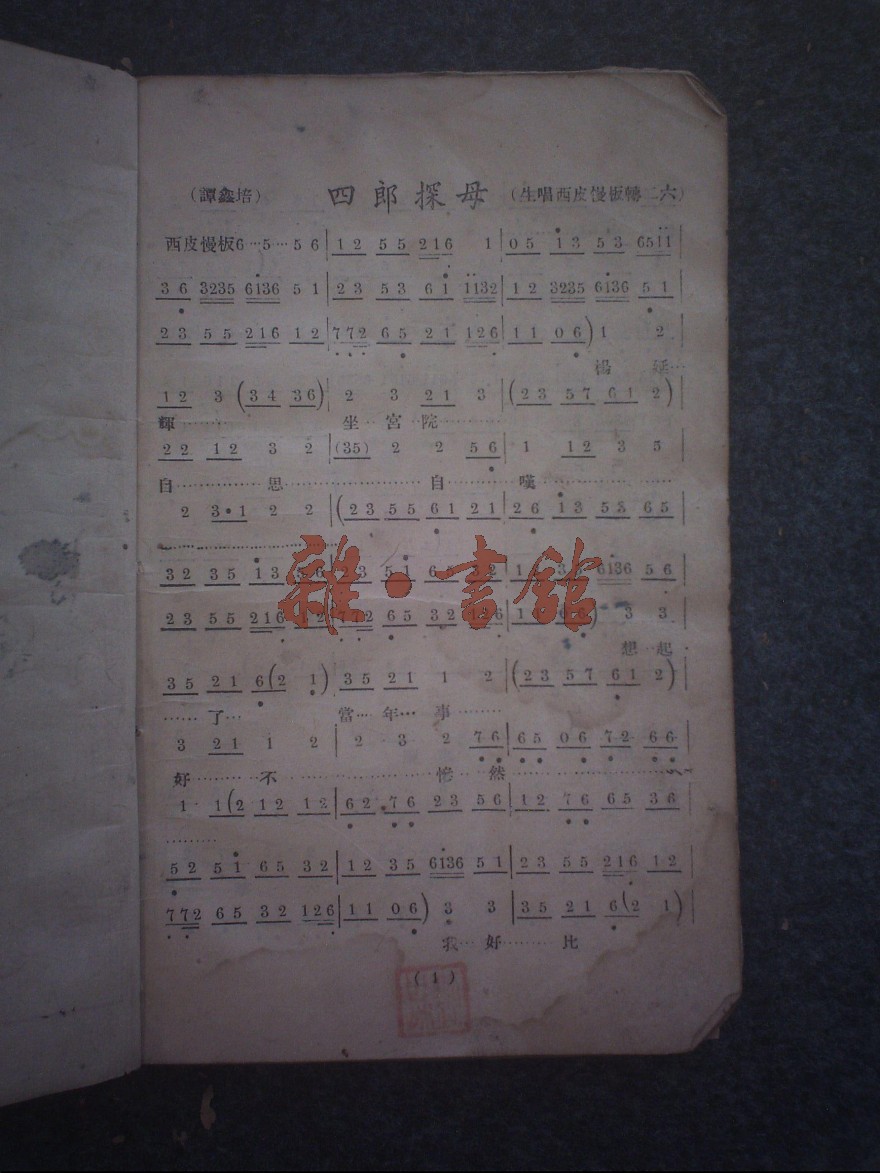 (譚鑫培) 四郎探母 (生唱西皮慢板轉二六)
西皮慢板6…5…5 6 | 1 2 5 5 216 1 | 0 5 1 3 5 3 6511 |
3 6 3235 6136 5 1 | 2 3 5 3 6 1 1132 | 1 2 3235 6136 5 1 |
2 3 5 5 216 1 2 | 7 7 2 6 5 2 1 126 | 1 1 0 6 ) 1 2
楊 延…
1 2 3 ( 3 4 3 6 ) | 2 3 2 1 3 | ( 2 3 5 7 6 1 2 ) |
輝………… 坐…宮…院…………
2 2 1 2 3 2 | (35) 2 2 5 6 | 1 1 2 3 5 |
自……………思……………………自…………嘆……………
2 3・1 2 2 | ( 2 3 5 5 6 1 2 1 | 2 6 1 3 5 3 6 5 |
3 2 3 5 1 3
6136 5 6 |
雜・書館
2 3 5 5 216 1 2 | 7 7 2 6 5 3 2 126 |
) 3 3 |
想…起・
3 5 2 1 6 ( 2 1 ) | 3 5 2 1 1 2 | ( 2 3 5 7 6 1 2 ) |
……了… 當…年…事………
3 2 1 1 2 | 2 3 2 7 6 | 6 5 0 6 7 2 6 6 |
好…………不…………………慘………然…………………
1 1 ( 2 1 2 1 2 | 6 2 7 6 2 3 5 6 | 1 2 7 6 6 5 3 6 |
5 2 5 1 6 5 3 2 | 1 2 3 5 6136 5 1 | 2 3 5 5 216 1 2 |
7 7 2 6 5 3 2 126 | 1 1 0 6 ) 3 3 | 3 5 2 1 6 ( 2 1 ) |
我…好…………比
( 1 )